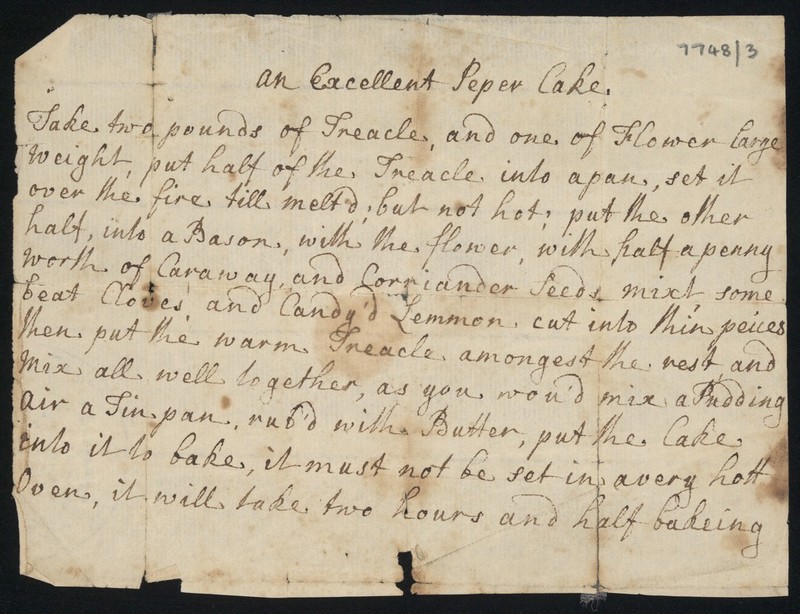 7748/3
an Excellent Peper Cake.
Take two pounds of Treacle, and one of Flower large
Weight, put half of the Treacle into a pan, set it
over the fire till melt'd; but not hot; put the other
half, into a Bason, with the flower, with half a penny
worth of Caraway, and Corriander Seeds mixt some
beat Cloves and Candy'd Lemmon cut into thin peices
then put the warm Treacle amongest the rest and
mix all well together, as you wou'd mix a Pudding
air a Tin pan, rub'd with Butter, put the Cake
into it to bake, it must not be set in a very hott
Oven, it will take two hours and half bakeing